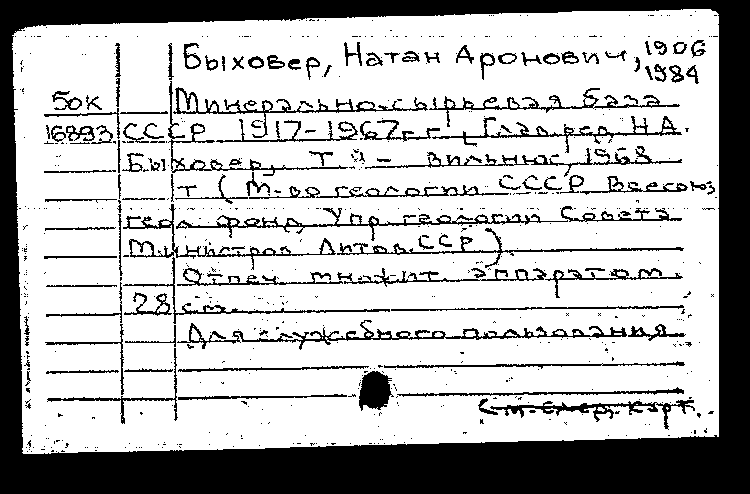 Быховер, Натан Аронович, 1906
1984
50к Минерально-сырьевая база
16893 СССР 1917-1967г.г. Глав.ред. Н.А.
Быховер. Т - Вильнюс, 1968
т (М-во геологии СССР Всесоюз
геол фонд Упр геологии Совета
Министров Литов.ССР)
Отпеч. множит. аппаратом.
28 см.
Для служебного пользования
См. след. карт.